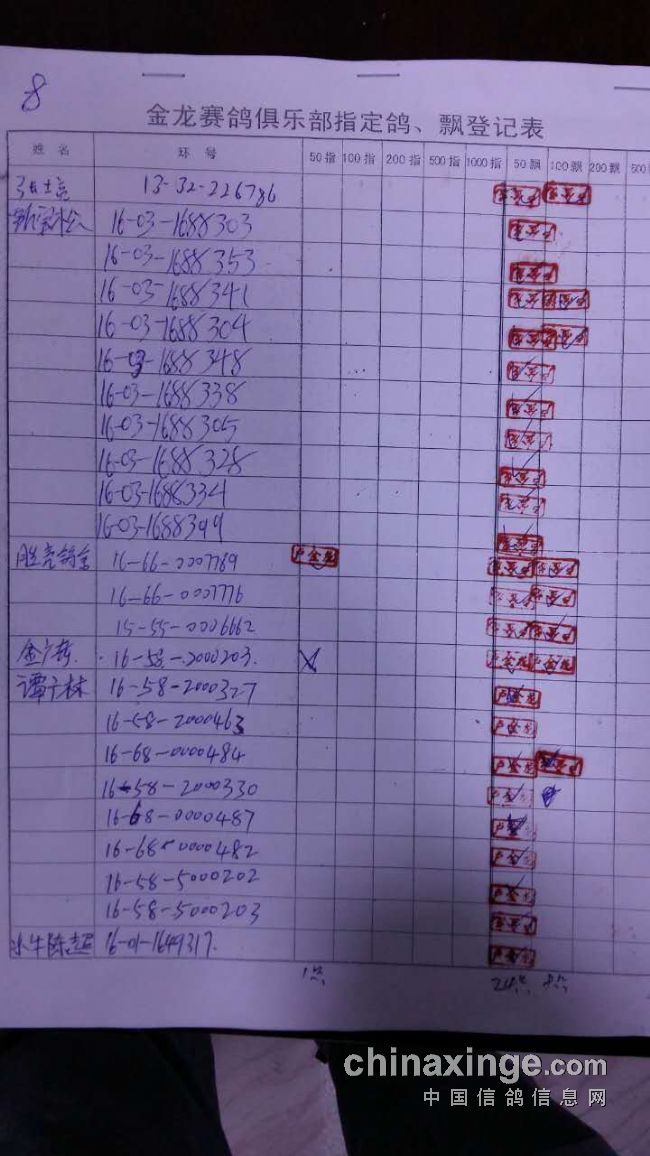 8
金龙赛鸽俱乐部指定鸽、飘登记表
姓 名 环 号 50指 100指 200指 500指 1000指 50飘 100飘 200飘 500
13-32-226786
16-03-1688303
16-03-1688353
16-03-1688341
16-03-1688304
16-03-1688348
16-03-1688338
16-03-1688305
16-03-1688328
16-03-1688334
16-03-1688399
16-66-0007789
16-66-0007776
15-55-0006662
16-58-2000203.
谭广林 16-58-2000327
16-58-2000463
16-68-0000484
16-58-2000330
16-68-0000487
16-68-0000482
16-58-5000202
16-58-5000203
16-01-1649317.
chinaxinge.com
中国信鸽信息网